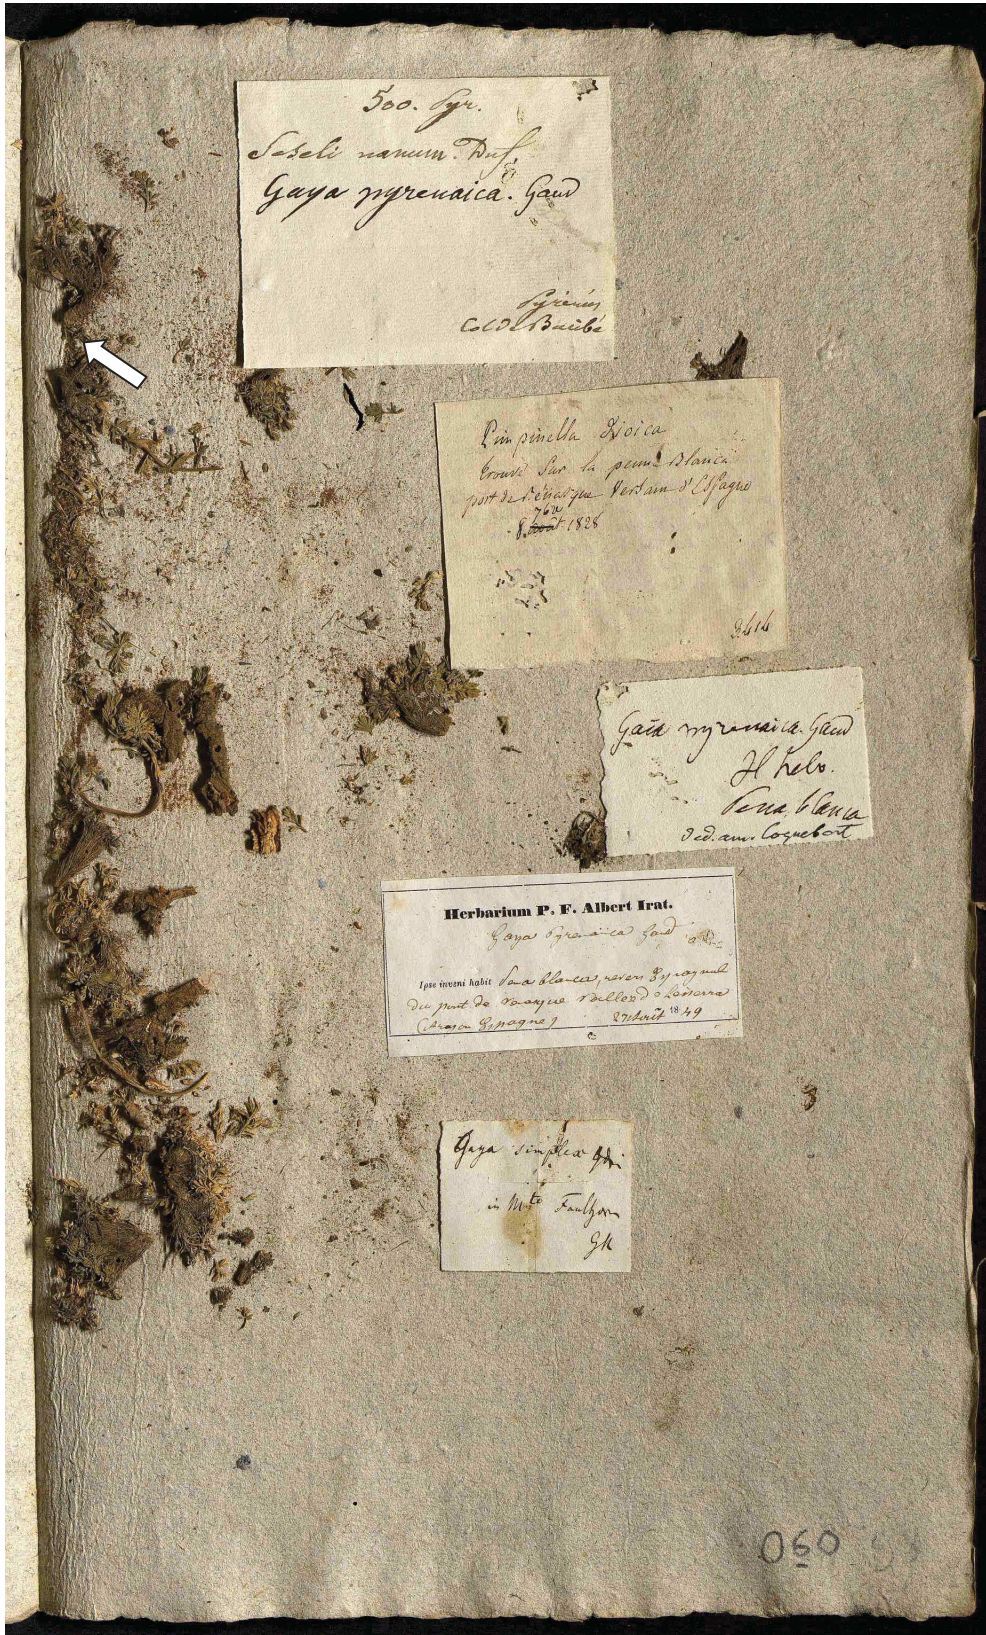 500. Pyr.
Seseli nanum. Duf.
Gaya pyrenaica. Gaud
Pyrénées
Col de
Pimpinella Dioica
trouvé Sur la penna Blanca
port de Vénasque Versant d'Espagne
8. 1828
Gaia pyrenaica. Gaud
H helv.
Pena blanca
ded. am. Coquebert
Herbarium P. F. Albert Irat.
Gaya Pyrenaïca Gaud
Ipse inveni habit Pena blanca, revers Espagnol
du port de
(Aragon Espagne) 27 Août 1849
Gaya simplex
in Mte Faulhorn
060